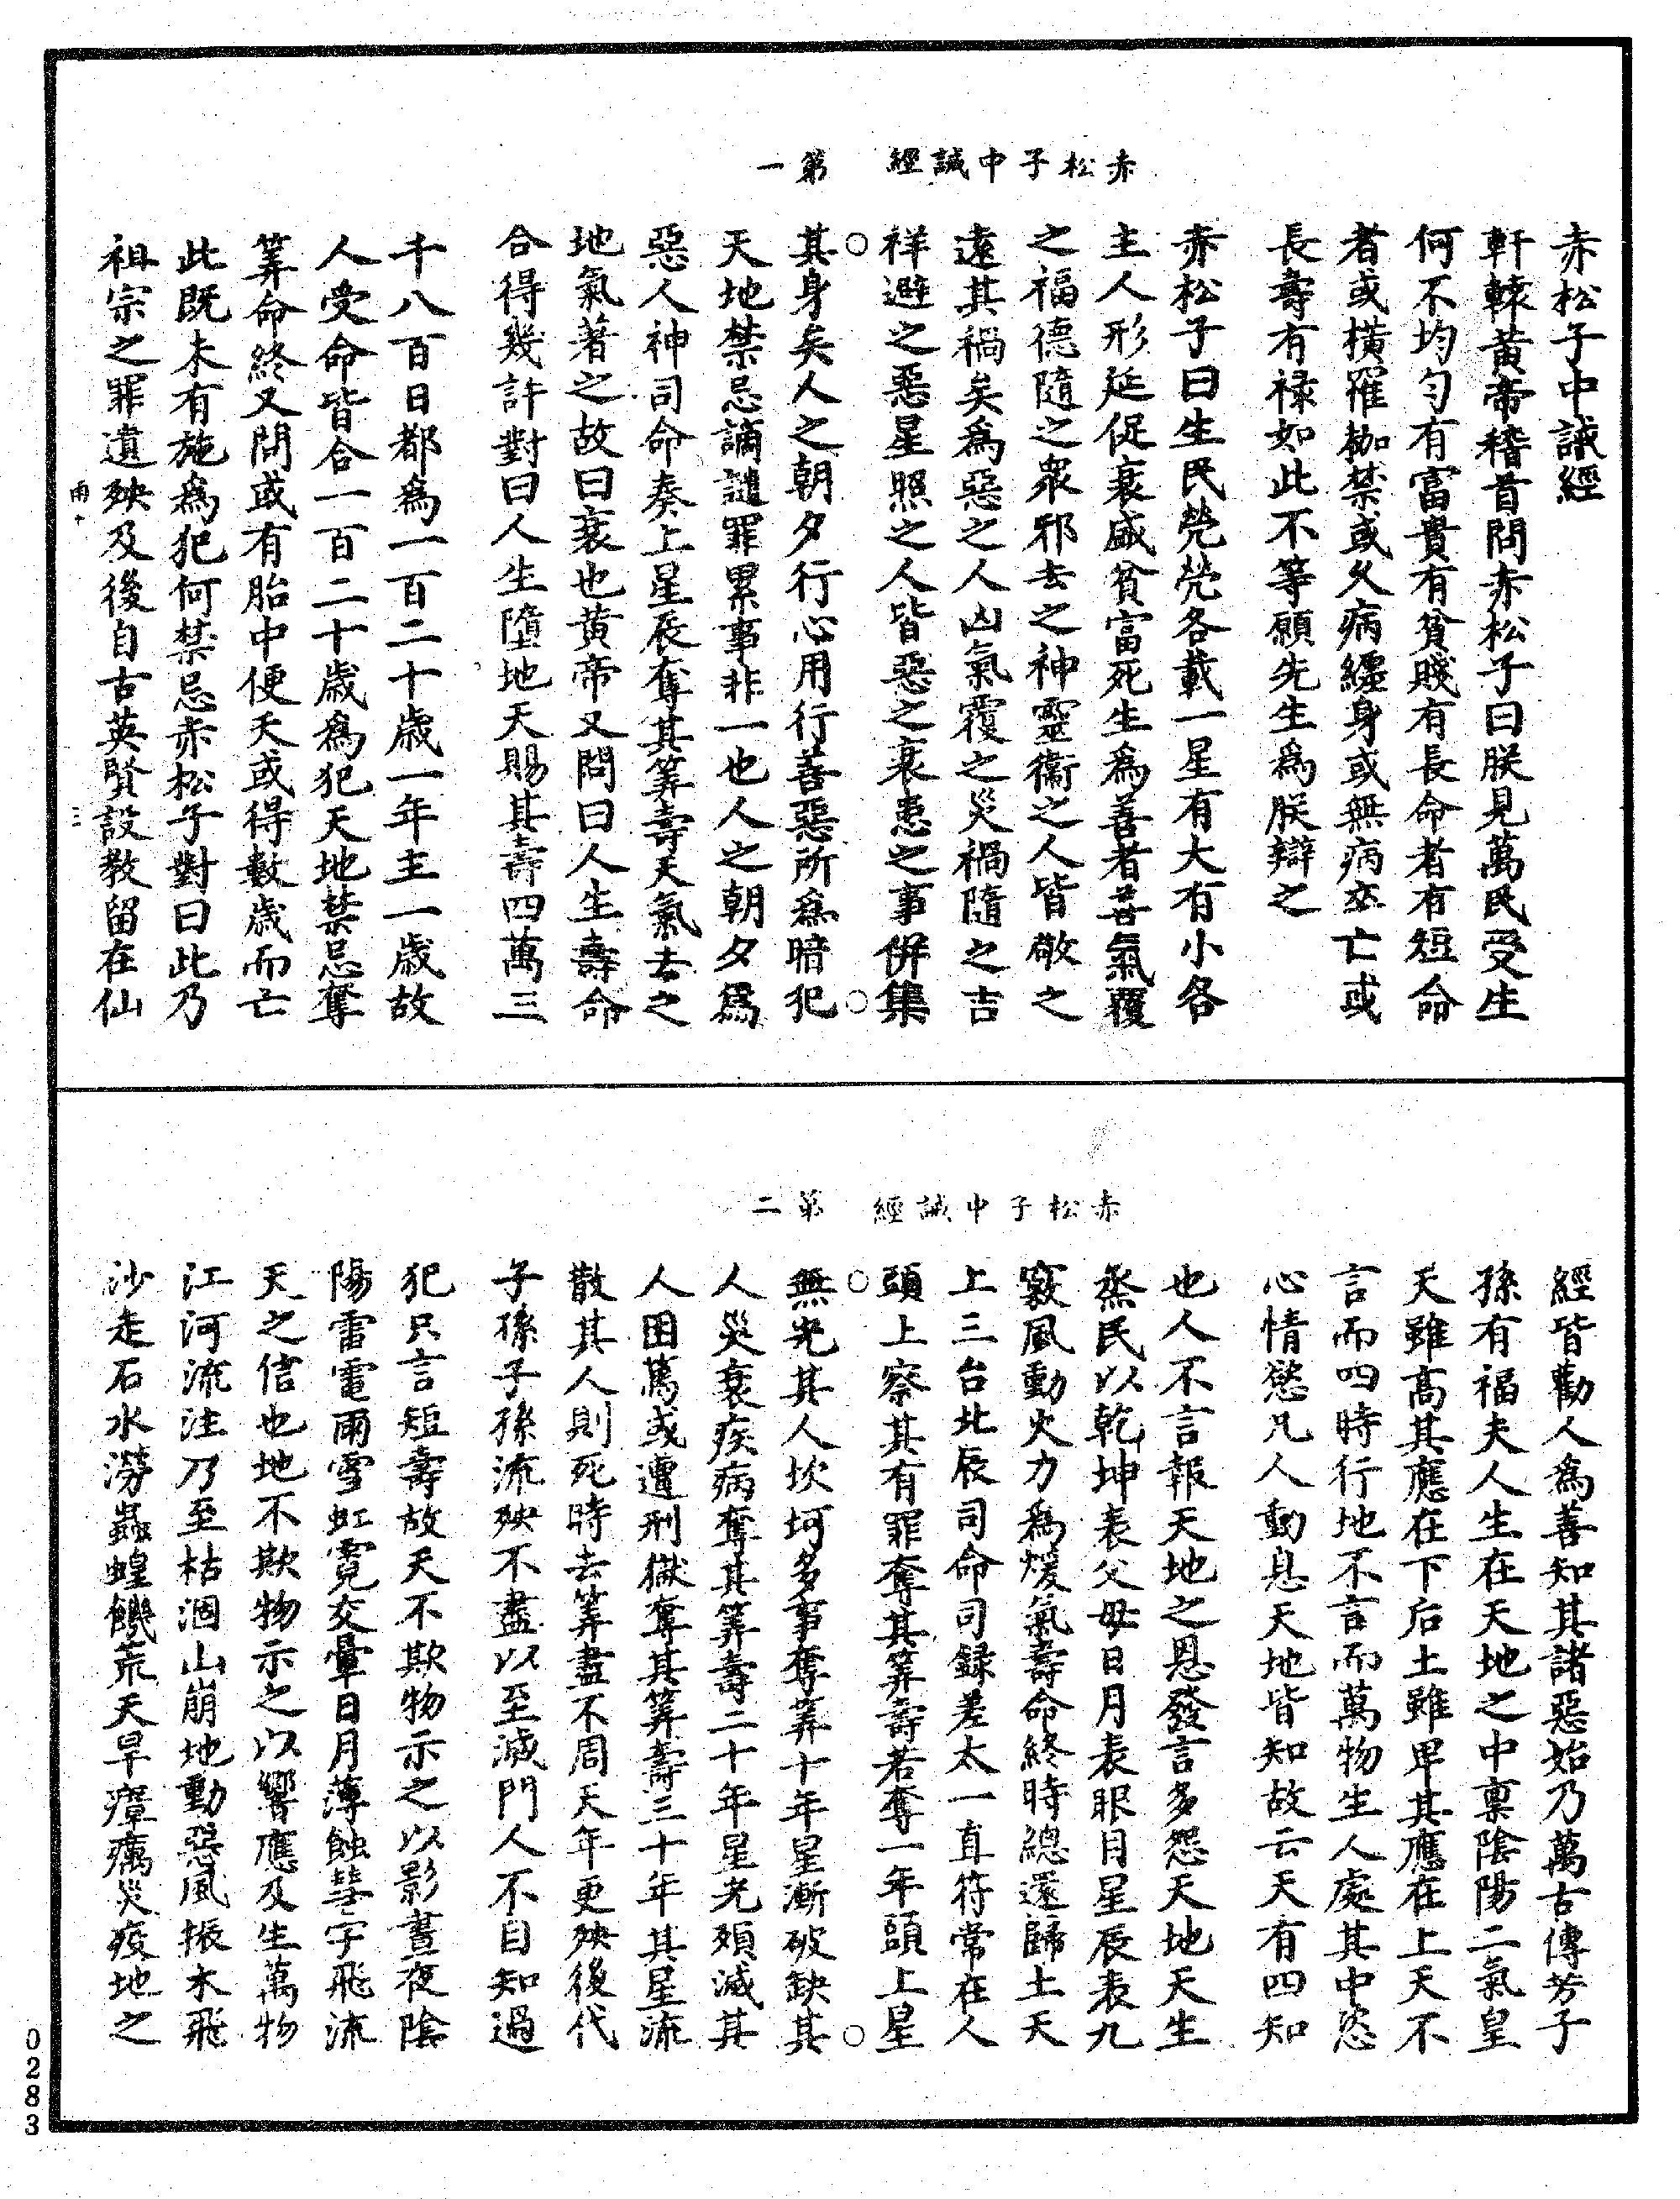 赤松子中誡經　第一
赤松子中誡經
軒轅黃帝稽首問赤松子曰朕見萬民受生
何不均勻有富貴有貧賤有長命者有短命
者或橫羅枷禁或久病纏身或無病卒亡或
長壽有祿如此不等願先生為朕辯之
赤松子曰生民煢煢各載一星有大有小各
主人形延促衰盛貧富死生為善者善氣覆
之福德隨之衆邪去之神靈衞之人皆敬之
遠其禍矣為惡之人凶氣覆之災禍隨之吉
祥避之惡星照之人皆惡之衰患之事併集
其身矣人之朝夕行心用行善惡所為暗犯
天地禁忌謫譴罪累事非一也人之朝夕為
惡人神司命奏上星辰奪其筭壽天氣去之
地氣著之故曰衰也黃帝又問曰人生壽命
合得幾許對曰人生墮地天賜其壽四萬三
千八百日都為一百二十歲一年主一歲故
人受命皆合一百二十歲為犯天地禁忌奪
筭命終又問或有胎中便夭或得數歲而亡
此既未有施為犯何禁忌赤松子對曰此乃
祖宗之罪遺殃及後自古英賢設教留在仙
雨十　三
赤松子中誡經　第二
經皆勸人為善知其諸惡始乃萬古傳芳子
孫有福夫人生在天地之中稟陰陽二氣皇
天雖高其應在下后土雖卑其應在上天不
言而四時行地不言而萬物生人處其中恣
心情慾凡人動息天地皆知故云天有四知
也人不言報天地之恩發言多怨天地天生
烝民以乾坤表父母日月表眼目星辰表九
竅風動火力為煖氣壽命終時總還歸土天
上三台北辰司命司錄差太一直符常在人
頭上察其有罪奪其筭壽若奪一年頭上星
無光其人坎坷多事奪筭十年星漸破缺其
人災衰疾病奪其筭壽二十年星光殞滅其
人困篤或遭刑獄奪其筭壽三十年其星流
散其人則死時去筭盡不周天年更殃後代
子孫子孫流殃不盡以至滅門人不自知過
犯只言短壽故天不欺物示之以影晝夜陰
陽雷電雨雪虹霓交暈日月薄蝕彗孛飛流
天之信也地不欺物示之以響應及生萬物
江河流注乃至枯涸山崩地動惡風振木飛
沙走石水澇蟲蝗饑荒天旱瘴癘災疫地之
0283